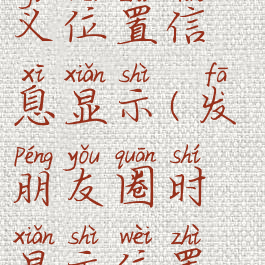 义位置信
xī xiǎn shì fā
息显示(发
Péng yǒu quān shí
朋友圈时
xiǎn shì wèi zhì
显示位置